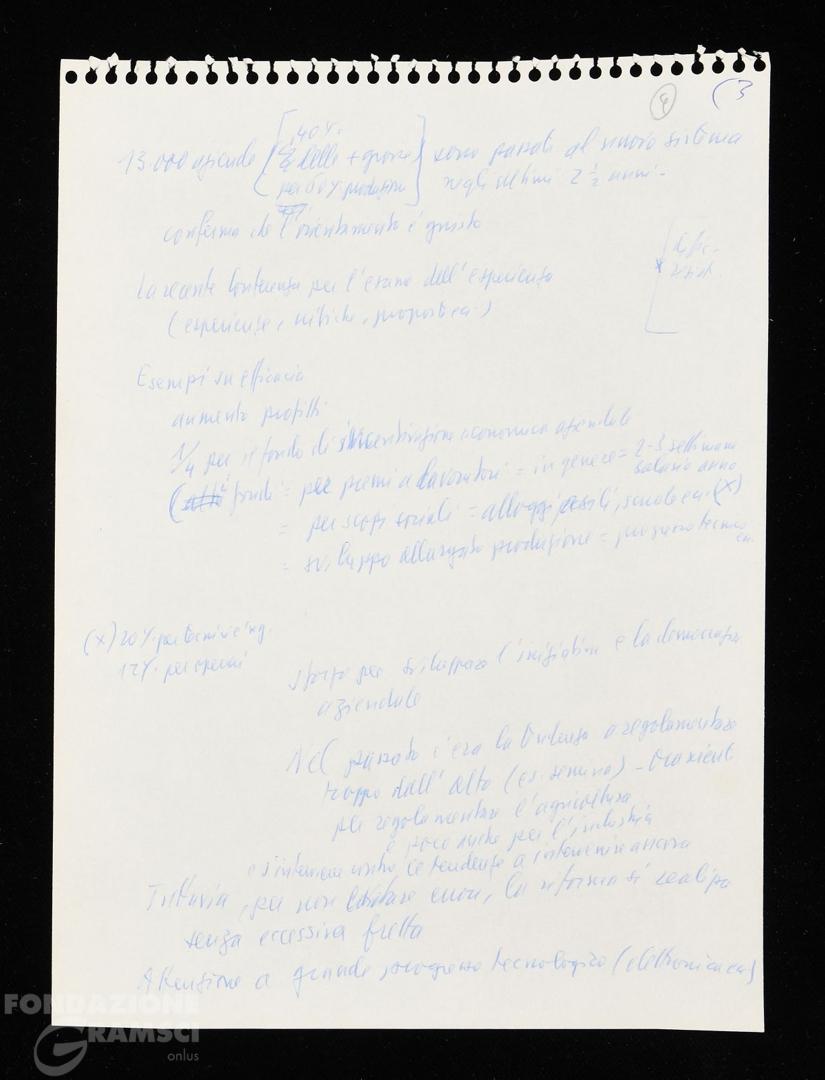 4 (3
13.000 aziende [40% delle + grosse per 50% produzione] sono passate al nuovo sistema
negli ultimi 2 ½ anni -
conferma che l'orientamento è giusto
La recente Conferenza per l'esame dell'esperienza
(esperienze, critiche, proposte ecc.)
Esempi su efficacia
aumento profitti
1/4 per il fondo di incentivazione economica aziendale
(fondi = per premi a lavoratori = in genere = 2-3 settimane
salario anno
= per scopi sociali = alloggi, asili, scuole ecc. (x)
= sviluppo allargato produzione = progresso tecnico
ecc.
(x) 20% per tecnici e ing.
12% per operai
sforzo per sviluppare l'iniziativa e la democrazia
aziendale
Nel passato c'era la tendenza a regolamentare
troppo dall'alto (es. semina) - Ora niente
per regolamentare l'agricoltura
e poco anche per l'industria
e s'interviene contro le tendenze a intervenire ancora
Tuttavia, per non creare errori, la riforma si realizza
senza eccessiva fretta
Attenzione a grande progresso tecnologico (elettronica ecc)
FONDAZIONE
GRAMSCI
onlus